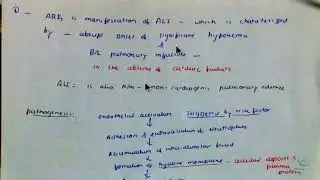 ① - ARDs is manifestation of ALI - which is characterized
by - abrupt onset of significant hypoxemia
&
B/L pulmonary infiltrates -
in the absence of cardiac failure
ALI - is also K/a non-cardiogenic pulmonary edema
pathogenesis:
endothelial activation triggered by risk factor
Adhesion & extravasation of Neutrophils
Accumulation of intra-alveolar fluid
formation of hyaline membrane - cellular deposit &
plasma
protein